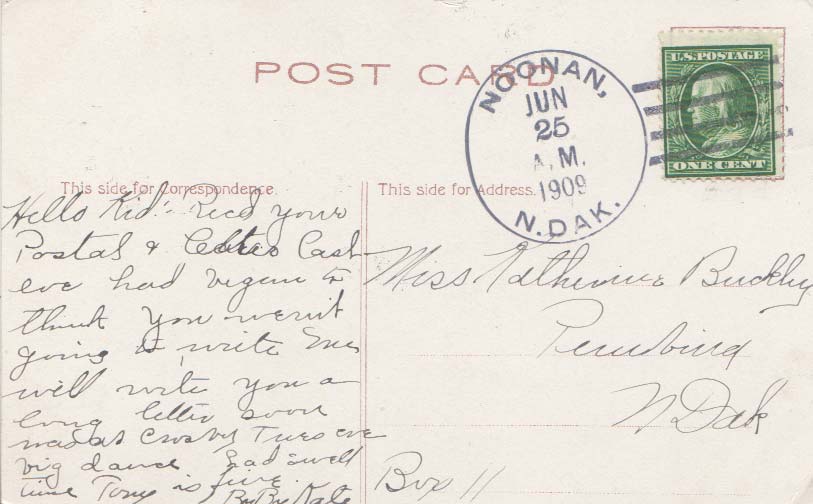 POST CARD
NOONAN,
JUN
25
A.M.
1909
N.DAK.
U.S.POSTAGE
ONE CENT
This side for Correspondence.
This side for Address.
Hello Kid! Recd your
Postal & Letter Last
eve had begun to
think you wernt
going to write
will write you a
long letter soon
was at Crosby Tues eve
big dance had swell
time Tony is fine
By By Kate
Miss Katherine Buckley
Pembina
N Dak
Box 11